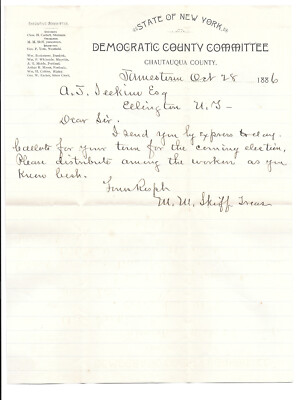 STATE OF NEW YORK.
DEMOCRATIC COUNTY COMMITTEE
CHAUTAUQUA COUNTY.
Jamestown Oct 28 1886
A. J. Seekins Esq
Ellington N.Y—
Dear Sir.
I send you by express to-day
ballots for your town for the coming election,
Please distribute among the workers as you
know best.
Yours Respt
M. M. Skiff Treas